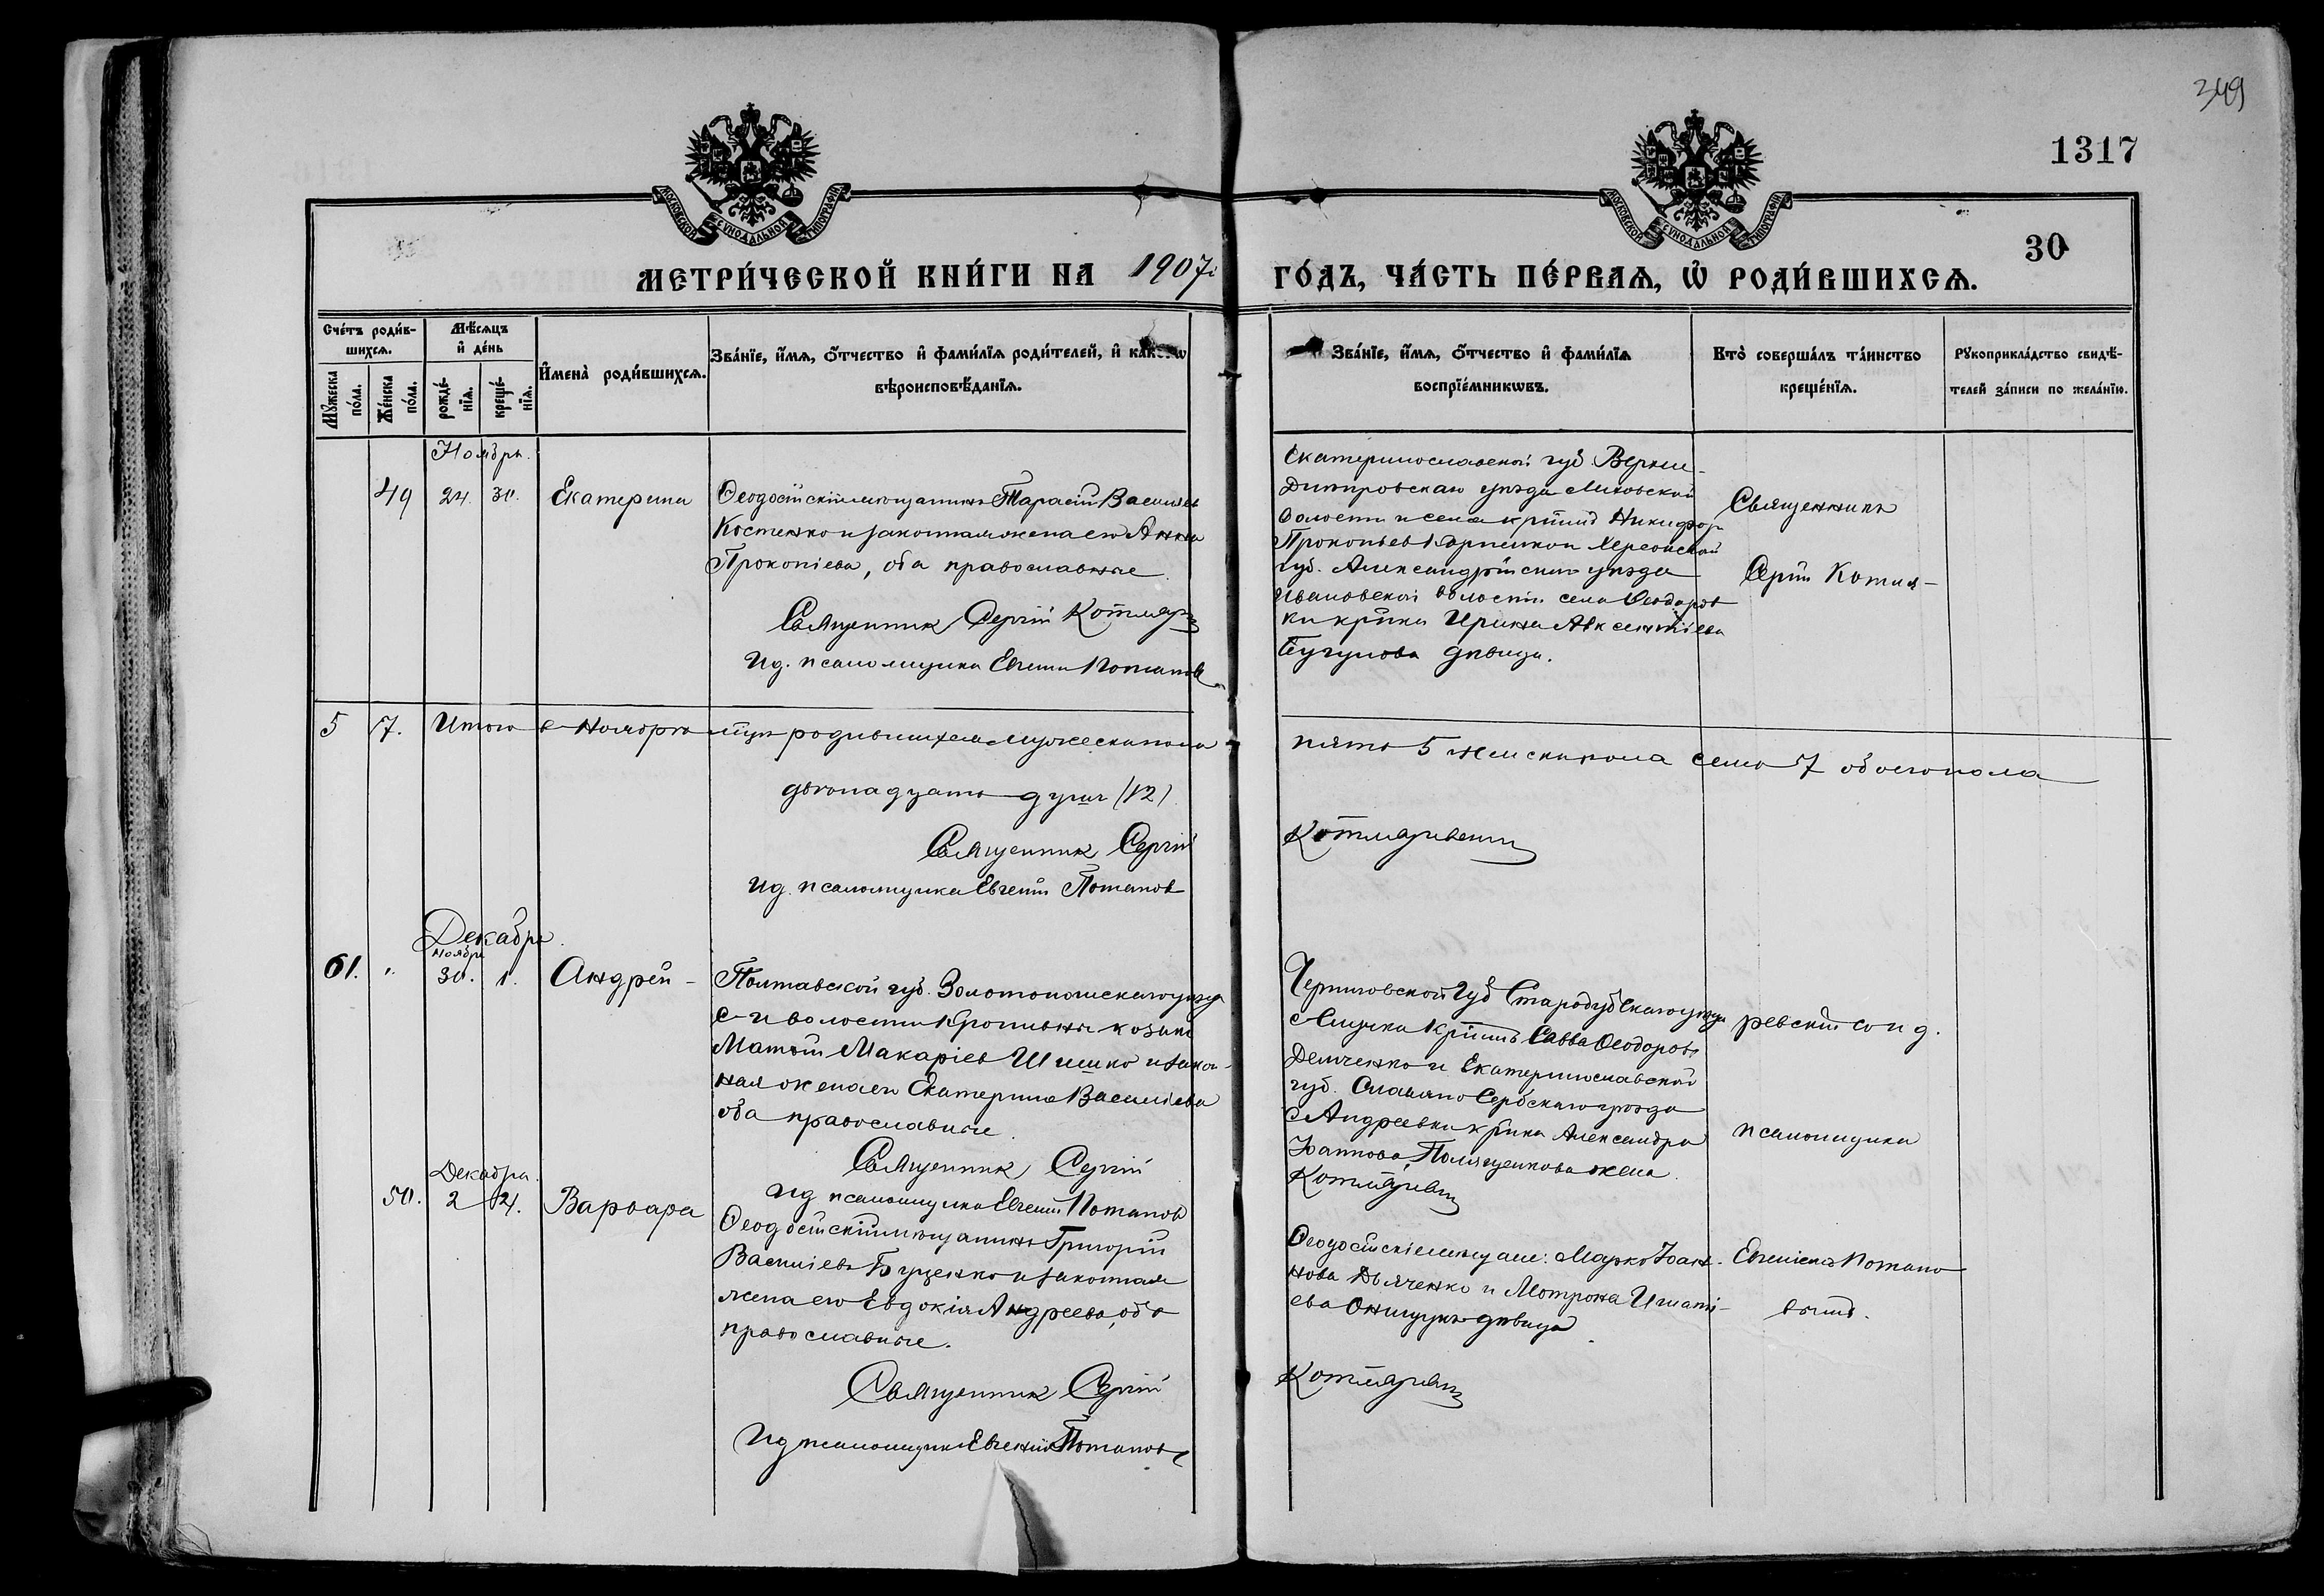 349
1317
30
МОСКОВСКОЙ СѴНОДАЛЬНОЙ ТИПОГРАФІИ
МОСКОВСКОЙ СѴНОДАЛЬНОЙ ТИПОГРАФІИ
МЕТРИ́ЧЕСКОЙ КНИ́ГИ НА 1907 ГО́ДЪ, ЧА́СТЬ ПЕ́РВАѦ, Ѡ҆ РОДИ́ВШИХСѦ.
Сче́тъ роди́в-
шихсѧ.
Мꙋ́жеска по́ла.
Же́нска по́ла.
Мѣ́сѧцъ
и҆ де́нь
рожде́-
нїѧ.
креще́-
нїѧ.
И҆мена̀ роди́вшихсѧ.
Зва́нїе, и҆́мѧ, ѻ҆́тчество и҆ фами́лїѧ роди́телей, и҆
вѣроисповѣ́данїѧ.
Зва́нїе, и҆́мѧ, ѻ҆́тчество и҆ фами́лїѧ
воспрїе́мникѡвъ.
Кто̀ соверша́лъ та́инство
креще́нїѧ.
Рꙋкоприкла́дство свидѣ́-
телей за́писи по жела́нїю.
Ноябрь.
49 24. 30. Екатерина
Ѳеодосійскій мѣщанинъ Тарасій Васильев
Костенко и законная жена его Анна
Прокопіева, оба православные.
Священник Сергій Котляр
Ид. псаломщика Евгений Потапов
Екатеринославской губ. Верхне-
Днепровскаго уезда Лиховской
волости и села кр-нин Никифор
Прокопьев и Херсонской
губ. Александрійскаго уезда
Ивановской волости села Ѳеодоров
ки кр-нка Ирина Авксентіева
девица.
Священникъ
Сергій Котля-
5 7. Итого в Ноябре м-це родившихся мужеска пола
пять 5 женска пола семь 7 обоего пола
двенадцать душ (12)
Священник Сергій
Котляревский
Ид. псаломщика Евгеній Потапов
Декабрь.
Ноябрь
61. " 30. 1. Андрей
Полтавской губ. Золотоношскаго уезда
с. и волости Кропивны козак
Матвій Макаріев Шишко и закон-
ная жена его Екатерина Васильева
оба православные.
Священник Сергій
Ид псаломщика Евгений Потапов
Черниговской губ Стародубскаго уезда
с кр-нин Савва Ѳеодоров
Демченко и Екатеринославской
губ. Славяно Сербскаго уезда
с Андреевки кр-нка Александра
Іоаннова, жена.
Котляревск
ревскій со и д.
псаломщика
Декабрь.
50. 2 21. Варвара
Ѳеодосійскій мѣщанинъ Григорій
Васильевъ Буценко и законная
жена его Евдокія Андреева, оба
православные.
Священник Сергій
Ид псаломщика Евгеній Потапов
Ѳеодосійскіе мещане: Марко Іоан-
нова Дьяченко и Мотрона Игнаті-
ева Онищук девица
Котляревск
Евгеніемъ Потапо-
вымъ.